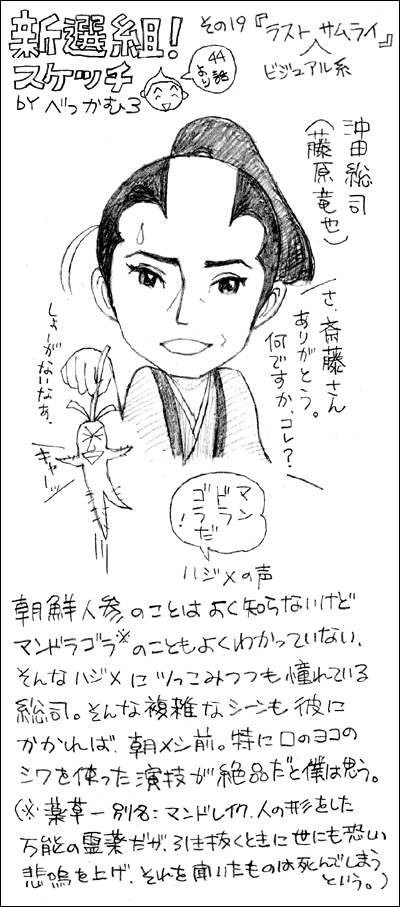 新選組!
スケッチ
BY べっかむ3
44話より
その19『ラスト サムライ』
ビジュアル系
沖田総司
(藤原竜也)
さ、斎藤さん
ありがとう。
何ですか、コレ?
しょーがないなあ。
キャーッ
マンドラゴラだ!
ハジメの声
朝鮮人参のことはよく知らないけど
マンドラゴラ※のこともよくわかっていない、
そんなハジメにツっこみつつも憧れている
総司。そんな複雑なシーンも彼に
かかれば、朝メシ前。特に口のヨコの
シワを使った演技が絶品だと僕は思う。
(※薬草―別名:マンドレイク。人の形をした
万能の霊薬だが、引き抜くときに世にも恐い
悲鳴を上げ、それを聞いたものは死んでしまう
という。)